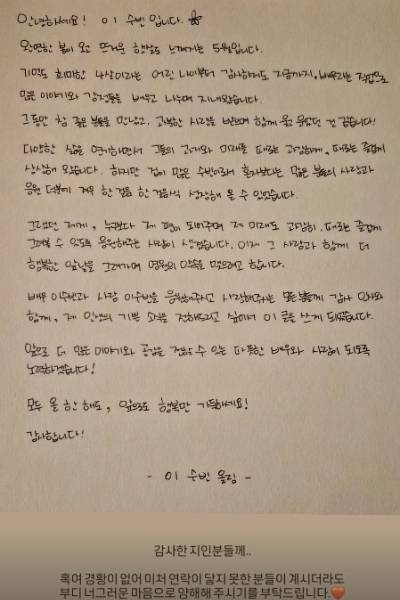 안녕하세요! 이 수빈 입니다.
완연한 봄이 오고 뜨거운 햇살도 느껴지는 5월입니다.
기억도 희미한 4살이라는 어린 나이부터 감사하게도 지금까지, 배우라는 직업으로
많은 이야기와 감정들을 배우고 나누며 지내왔습니다.
그동안 참 좋은 분들을 만나고, 고분한 사랑을 받으며 함께 웃고 울었던 것 같습니다!
다양한 삶을 연기하면서 그들의 과거와 미래를 때로는 고민하게, 때로는 즐겁게
상상해 왔습니다. 하지만 겁이 많은 수빈이로서 혼자보다는 많은 분들의 사랑과
응원 덕분에 겨우 한 걸음 한 걸음씩 성장해 올 수 있었습니다.
그랬던 제게, 누구보다 제 편이 되어주며 저 미래도 고민히, 때로는 즐겁게
그려볼 수 있도록 응원해주는 사람이 생겼습니다. 이제 그 사람과 함께 더
행복한 앞날을 그려가며 영원의 약속을 맺으려고 합니다.
배우 이수빈과 사람 이수빈을 응원해주시고 사랑해주시는 모든 분들께 감사 인사와
함께, 제 인생의 기쁜 소식을 전해드리고 싶어서 이 글을 쓰게 되었습니다.
앞으로 더 많은 이야기와 공감을 전할 수 있는 따뜻한 배우와 사람이 되도록
노력하겠습니다!
모두 올 한 해도, 앞으로도 행복만 가득하세요!
감사합니다!
- 이 수빈 올림 -
감사한 지인분들께..
혹여 경황이 없어 미처 연락이 닿지 못한 분들이 계시더라도
부디 너그러운 마음으로 양해해 주시기를 부탁드립니다.🧡